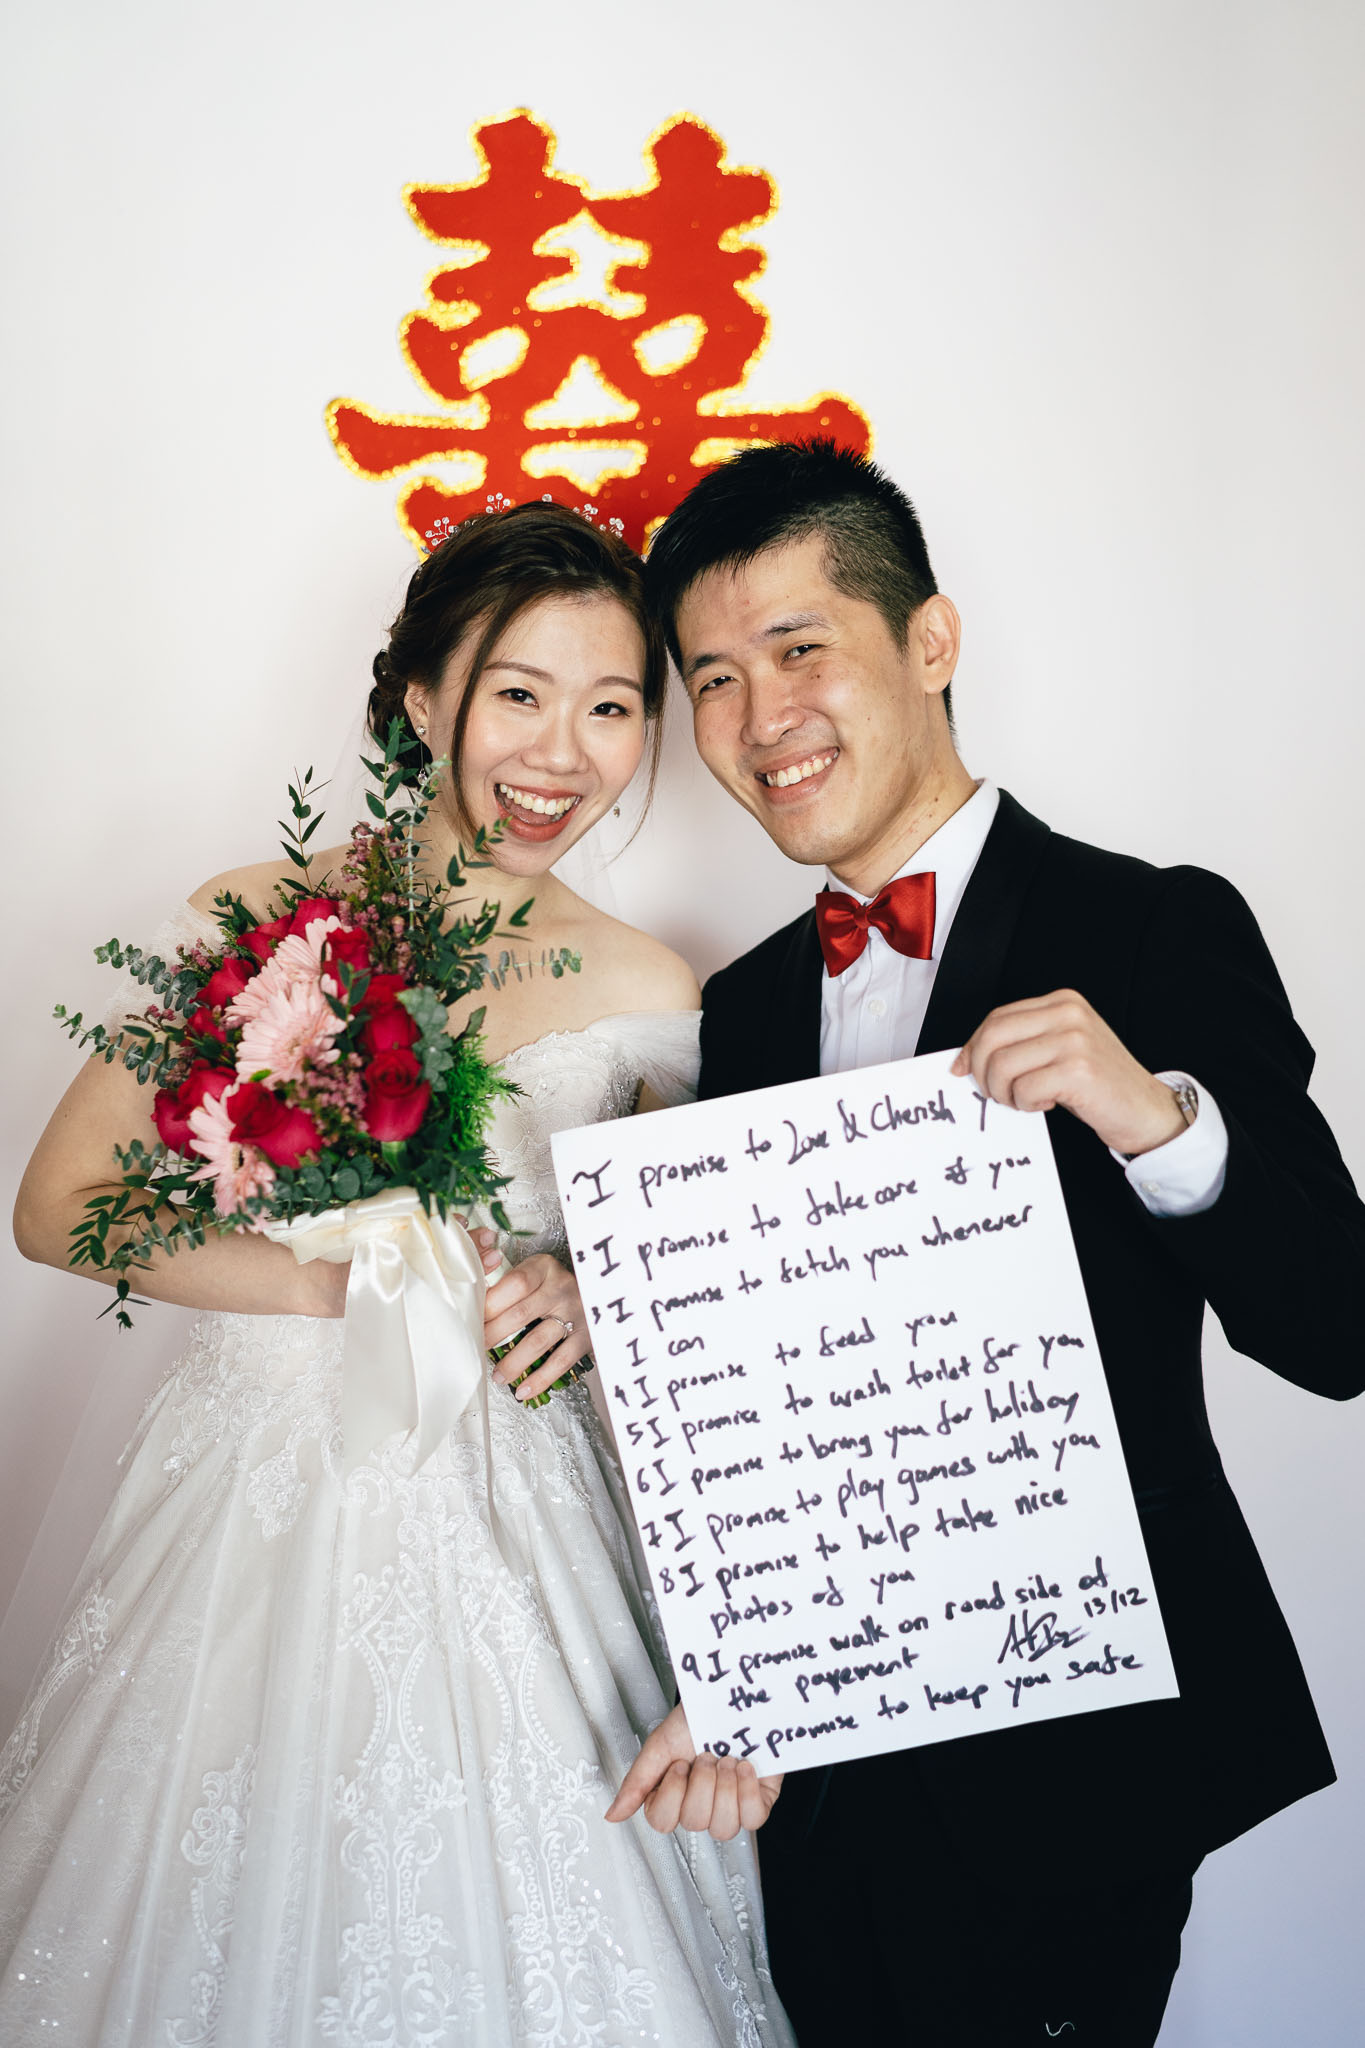 囍
1. I promise to Love & Cherish y
2 I promise to take care of you
3 I promise to fetch you whenever
I can
4 I promise to feed you
5 I promise to wash toilet for you
6 I promise to bring you for holiday
7 I promise to play games with you
8 I promise to help take nice
photos of you
9 I promise walk on road side of
the pavement
13/12
10 I promise to keep you safe